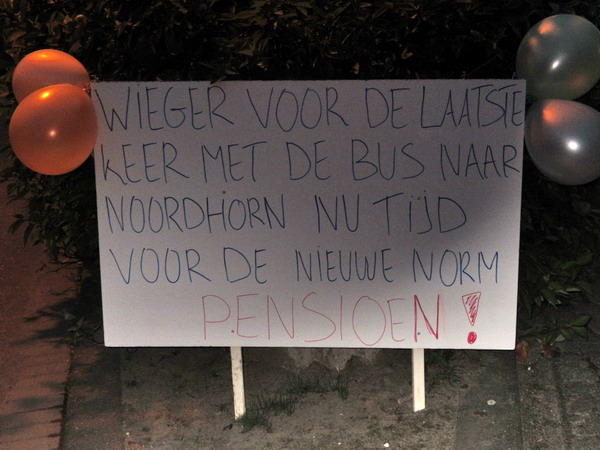 WIEGER VOOR DE LAATSTE
KEER MET DE BUS NAAR
NOORDHORN NU TIJD
VOOR DE NIEUWE NORM
PENSIOEN!